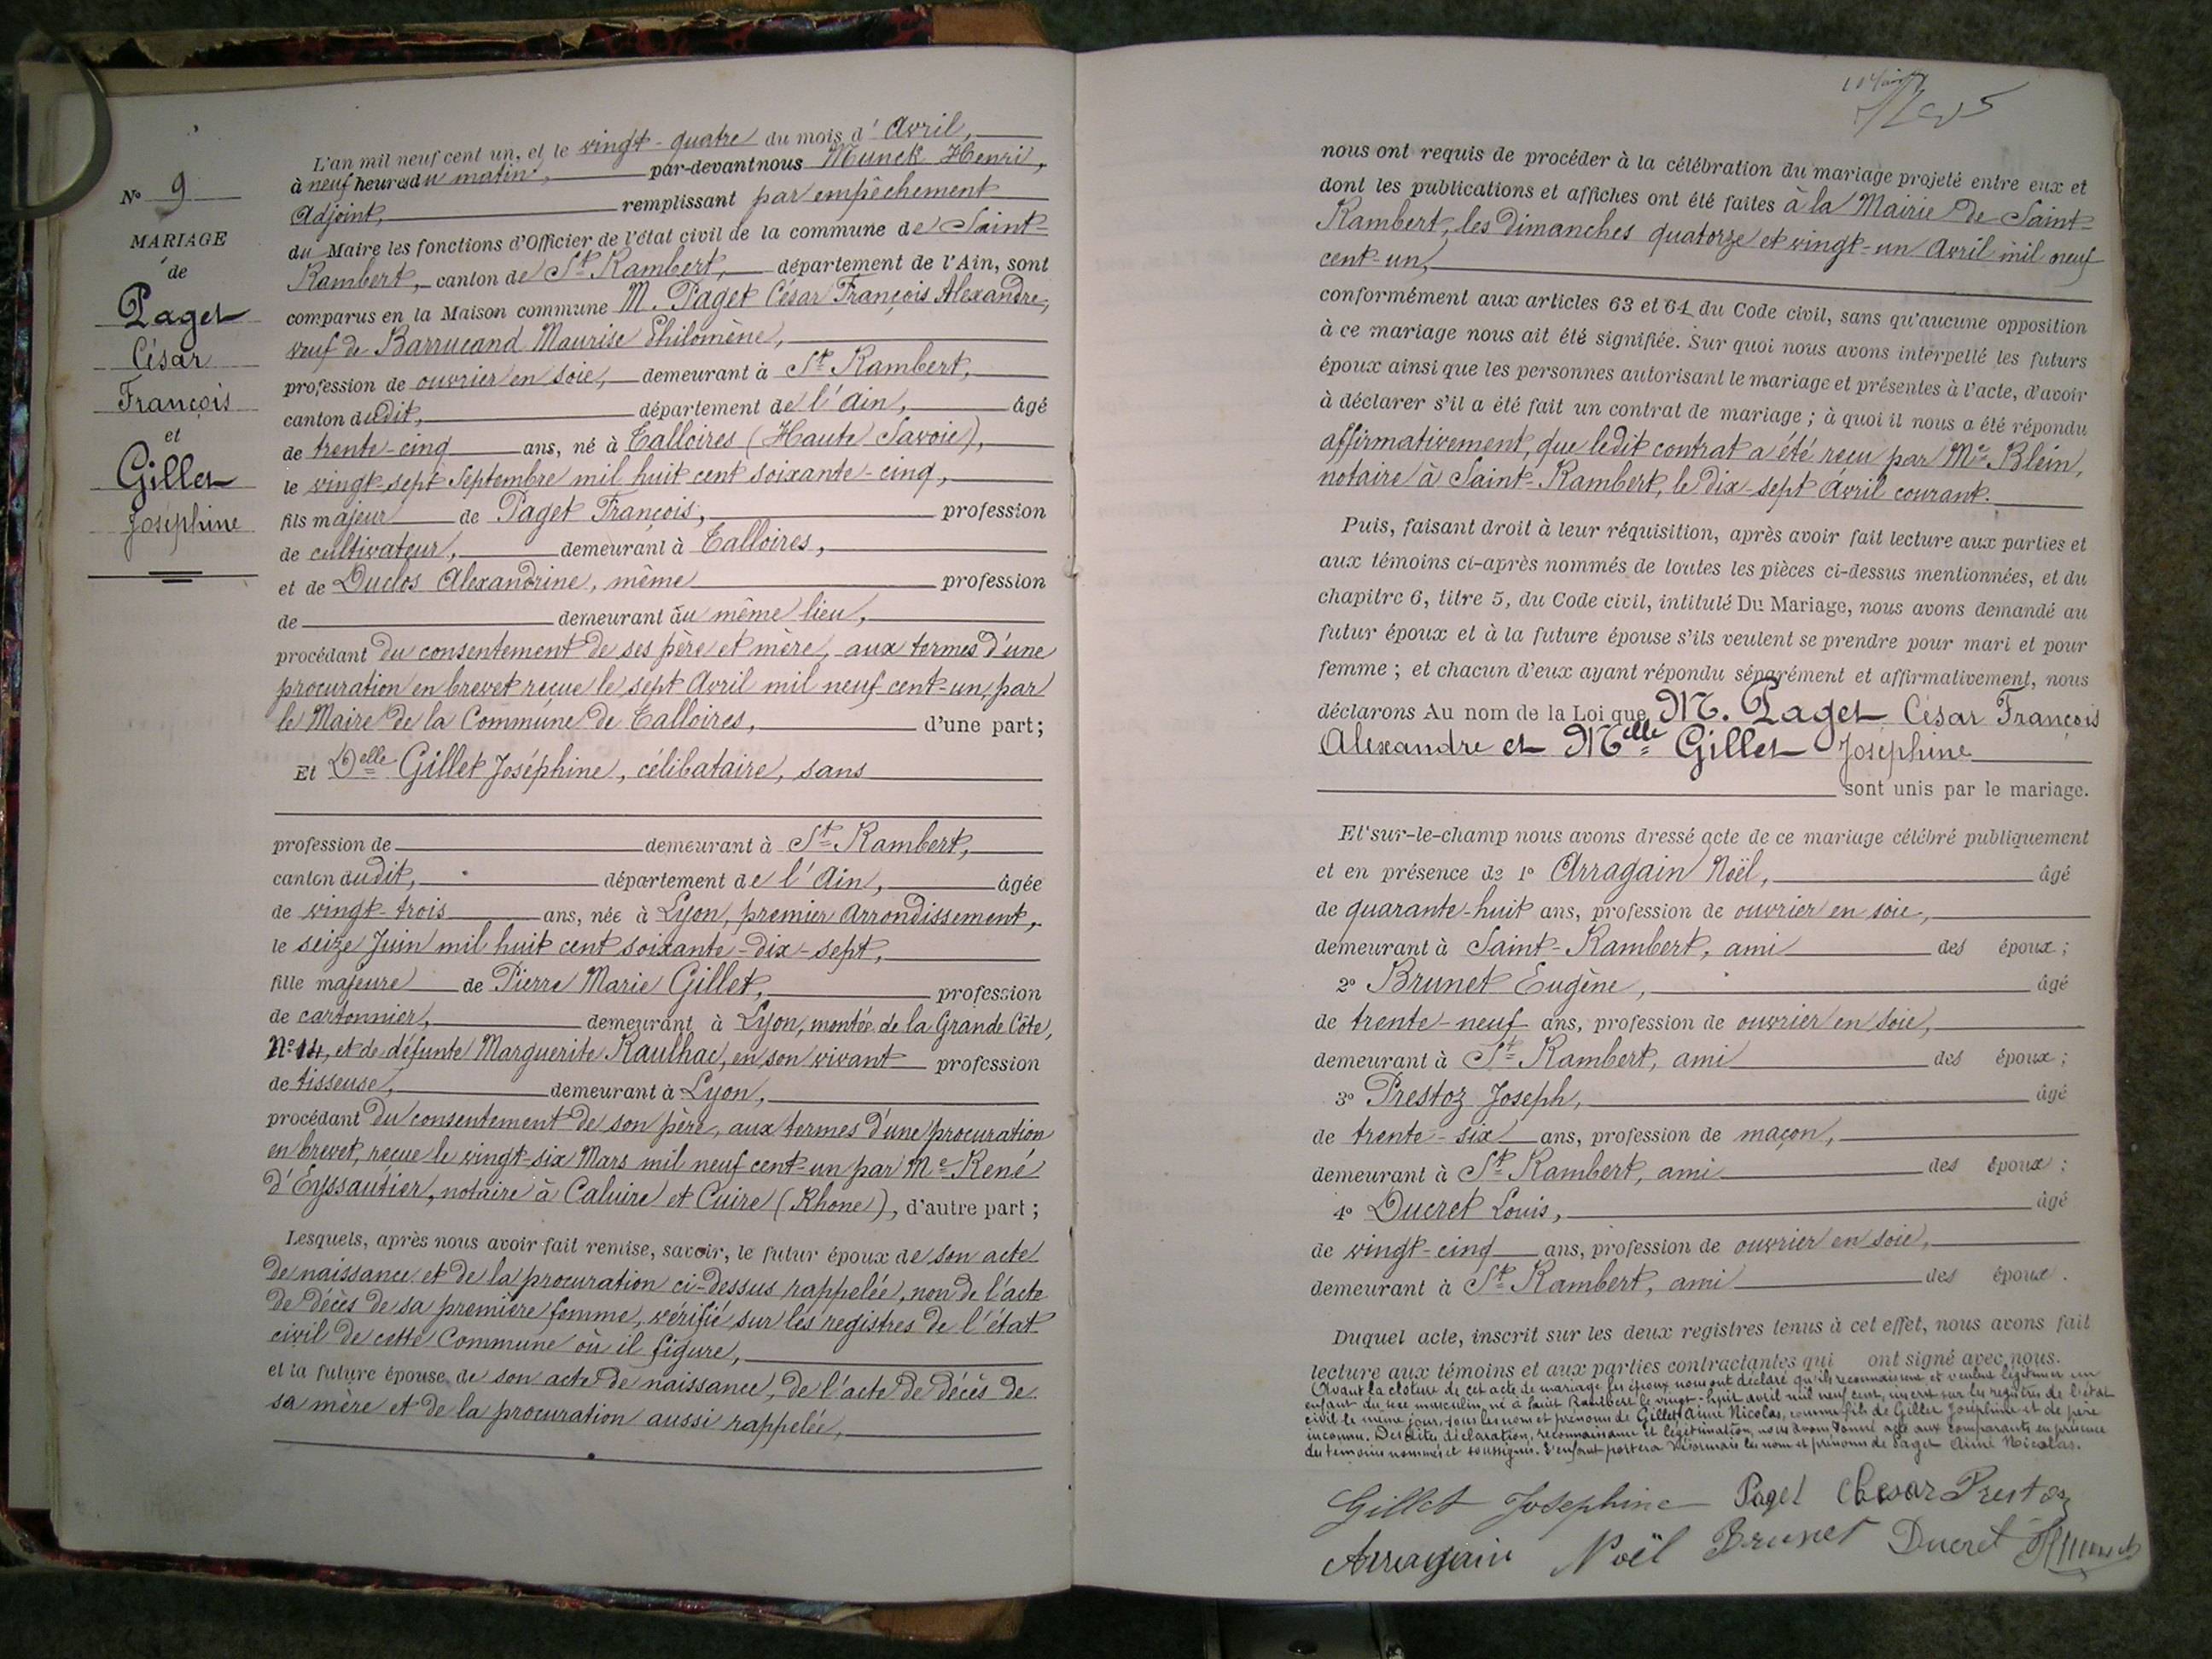 N° 9
MARIAGE
de
Paget
César
François
et
Gillet
Joséphine
L'an mil neuf cent un, et le vingt-quatre du mois d'Avril,
à neuf heures du matin, par-devant nous Munck Henri,
Adjoint, remplissant par empêchement
du Maire les fonctions d'Officier de l'état civil de la commune de Saint-
Rambert, canton de St Rambert, département de l'Ain, sont
comparus en la Maison commune M. Paget César François Alexandre,
veuf de Barrucand Maurise Philomène,
profession de ouvrier en soie, demeurant à St Rambert,
canton dudit, département de l'Ain, âgé
de trente-cinq ans, né à Talloires (Haute Savoie),
le vingt-sept Septembre mil huit cent soixante-cinq,
fils majeur de Paget François, profession
de cultivateur, demeurant à Talloires,
et de Duclos Alexandrine, même profession
de demeurant au même lieu,
procédant du consentement de ses père et mère, aux termes d'une
procuration en brevet reçue le sept Avril mil neuf cent-un, par
le Maire de la Commune de Talloires, d'une part;
Et Delle Gillet Joséphine, célibataire, sans
profession de demeurant à St Rambert,
canton dudit, département de l'Ain, âgée
de vingt-trois ans, née à Lyon, premier Arrondissement,
le seize Juin mil huit cent soixante-dix-sept,
fille majeure de Pierre Marie Gillet, profession
de cartonnier, demeurant à Lyon, montée de la Grande Côte,
N° 14, et de défunte Marguerite Raulhac, en son vivant profession
de tisseuse, demeurant à Lyon,
procédant du consentement de son père, aux termes d'une procuration
en brevet, reçue le vingt-six Mars mil neuf cent-un par Me René
d'Eyssautier, notaire à Caluire et Cuire (Rhone), d'autre part;
Lesquels, après nous avoir fait remise, savoir, le futur époux de son acte
de naissance et de la procuration ci-dessus rappelée, non de l'acte
de décès de sa première femme, vérifié sur les registres de l'état
civil de cette Commune où il figure,
et la future épouse de son acte de naissance, de l'acte de décès de
sa mère et de la procuration aussi rappelée,
nous ont requis de procéder à la célébration du mariage projeté entre eux et
dont les publications et affiches ont été faites à la Mairie de Saint-
Rambert, les dimanches quatorze et vingt-un Avril mil neuf
cent-un,
conformément aux articles 63 et 64 du Code civil, sans qu'aucune opposition
à ce mariage nous ait été signifiée. Sur quoi nous avons interpellé les futurs
époux ainsi que les personnes autorisant le mariage et présentes à l'acte, d'avoir
à déclarer s'il a été fait un contrat de mariage; à quoi il nous a été répondu
affirmativement, que ledit contrat a été reçu par Me Blein,
notaire à Saint-Rambert, le dix-sept Avril courant.
Puis, faisant droit à leur réquisition, après avoir fait lecture aux parties et
aux témoins ci-après nommés de toutes les pièces ci-dessus mentionnées, et du
chapitre 6, titre 5, du Code civil, intitulé Du Mariage, nous avons demandé au
futur époux et à la future épouse s'ils veulent se prendre pour mari et pour
femme; et chacun d'eux ayant répondu séparément et affirmativement, nous
déclarons Au nom de la Loi que M. Paget César François
Alexandre et Melle Gillet Joséphine
sont unis par le mariage.
Et sur-le-champ nous avons dressé acte de ce mariage célébré publiquement
et en présence de 1° Arragain Noël, âgé
de quarante-huit ans, profession de ouvrier en soie,
demeurant à Saint-Rambert, ami des époux;
2° Brunet Eugène, âgé
de trente-neuf ans, profession de ouvrier en soie,
demeurant à St Rambert, ami des époux;
3° Prestoz Joseph, âgé
de trente-six ans, profession de maçon,
demeurant à St Rambert, ami des époux;
4° Ducret Louis, âgé
de vingt-cinq ans, profession de ouvrier en soie,
demeurant à St Rambert, ami des époux.
Duquel acte, inscrit sur les deux registres tenus à cet effet, nous avons fait
lecture aux témoins et aux parties contractantes qui ont signé avec nous.
Avant la cloture de cet acte de mariage les époux nous ont déclaré qu'ils reconnaissent et veulent légitimer un
enfant du sexe masculin, né à Saint Rambert le vingt-huit avril mil neuf cent, inscrit sur les registres de l'état
civil le même jour, sous les nom et prénoms de Gillet Aimé Nicolas, comme fils de Gillet Joséphine et de père
inconnu. Desdites déclaration, reconnaissance et légitimation, nous avons donné acte aux comparants en présence
des témoins nommés et soussignés. L'enfant portera désormais les nom et prénoms de Paget Aimé Nicolas.
Gillet Josephine Paget Cesar Prestoz
Arragain Noël Brunet Ducret HMunck